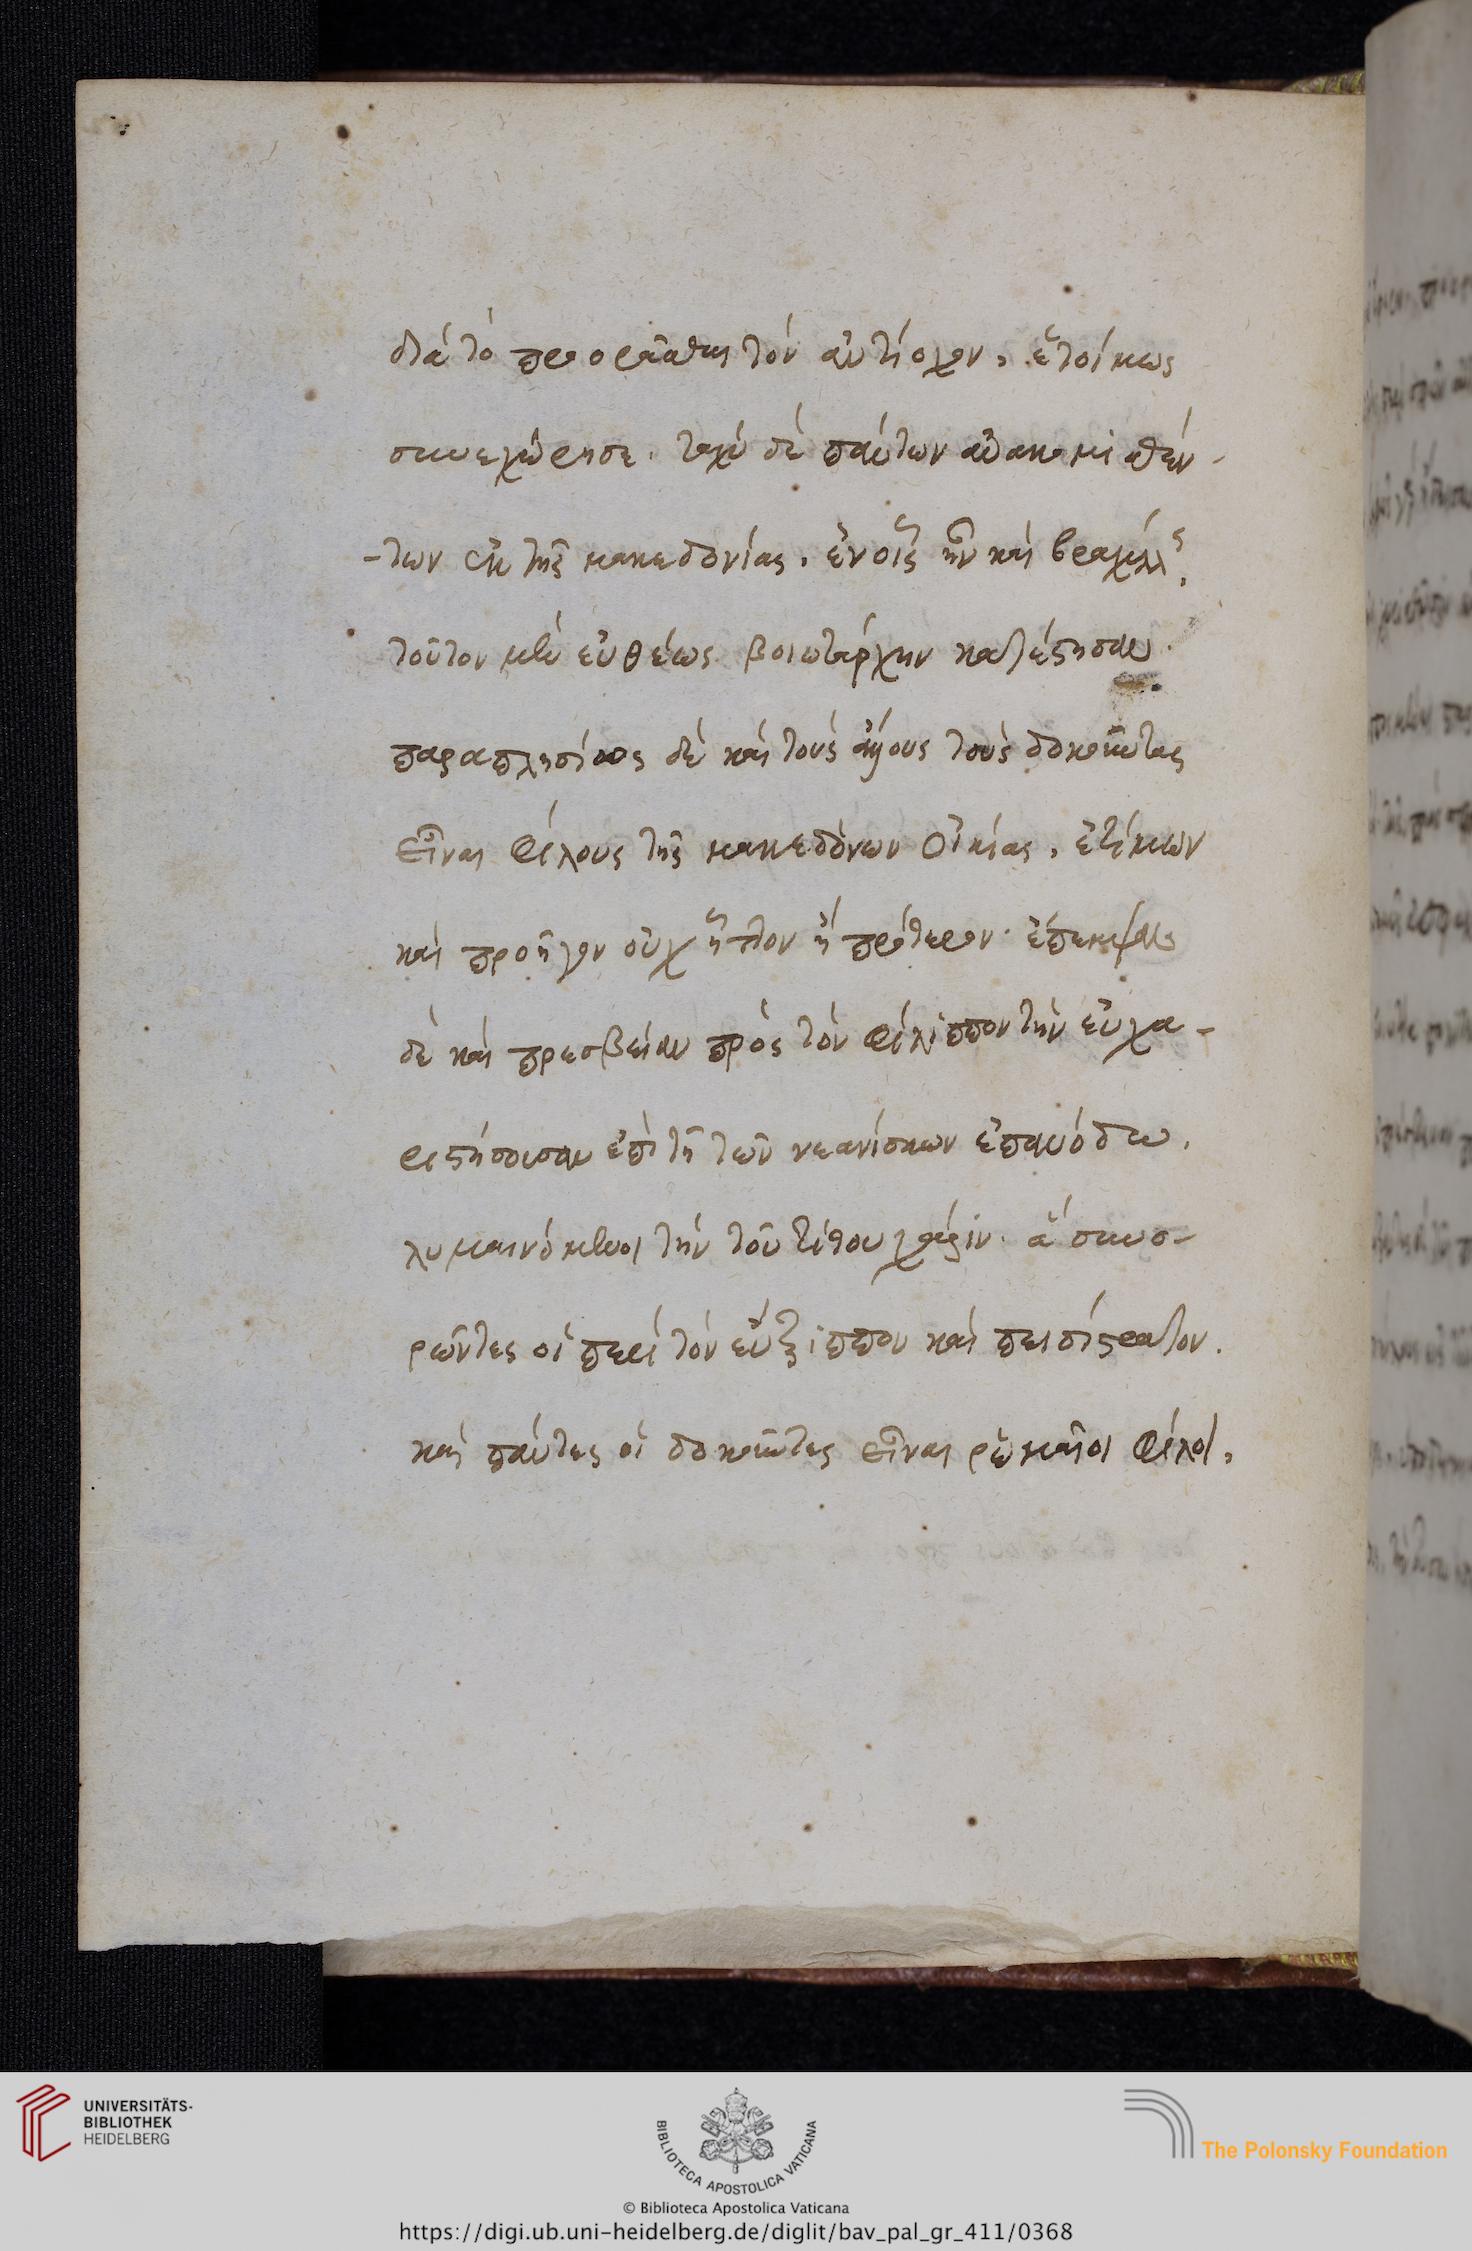 διὰ τὸ προορᾶσθαι τὸν ἀντίοχον, ἑτοίμως
συνεχώρησε. ταχὺ δὲ πάντων ἀνακομισθέν-
-των ἐκ τῆς μακεδονίας, ἐν οἷς ἦν καὶ βραχύλλς,
τοῦτον μὲν εὐθέως βοιωτάρχην κατέστησαν.
παραπλησίως δὲ καὶ τοὺς ἄλλους τοὺς δοκοῦντας
εἶναι φίλους τῆς μακεδόνων οἰκίας, ἐτίμων
καὶ προῆγον οὐχ ἧττον ἢ πρότερον. ἔπεμψαν
δὲ καὶ πρεσβείαν πρὸς τὸν φίλιππον τὴν εὐχα-
ριστήσουσαν ἐπὶ τῇ τῶν νεανίσκων ἐπανόδω,
λυμαινόμενοι τὴν τοῦ τίτου χάριν. ἃ συνο-
ρῶντες οἱ περὶ τὸν εὔξιππον καὶ πεισίστρατον.
καὶ πάντες οἱ δοκοῦντες εἶναι ῥωμαῖοι φίλοι,
UNIVERSITÄTS-
BIBLIOTHEK
HEIDELBERG
BIBLIOTECA APOSTOLICA VATICANA
The Polonsky Foundation
© Biblioteca Apostolica Vaticana
https://digi.ub.uni-heidelberg.de/diglit/bav_pal_gr_411/0368